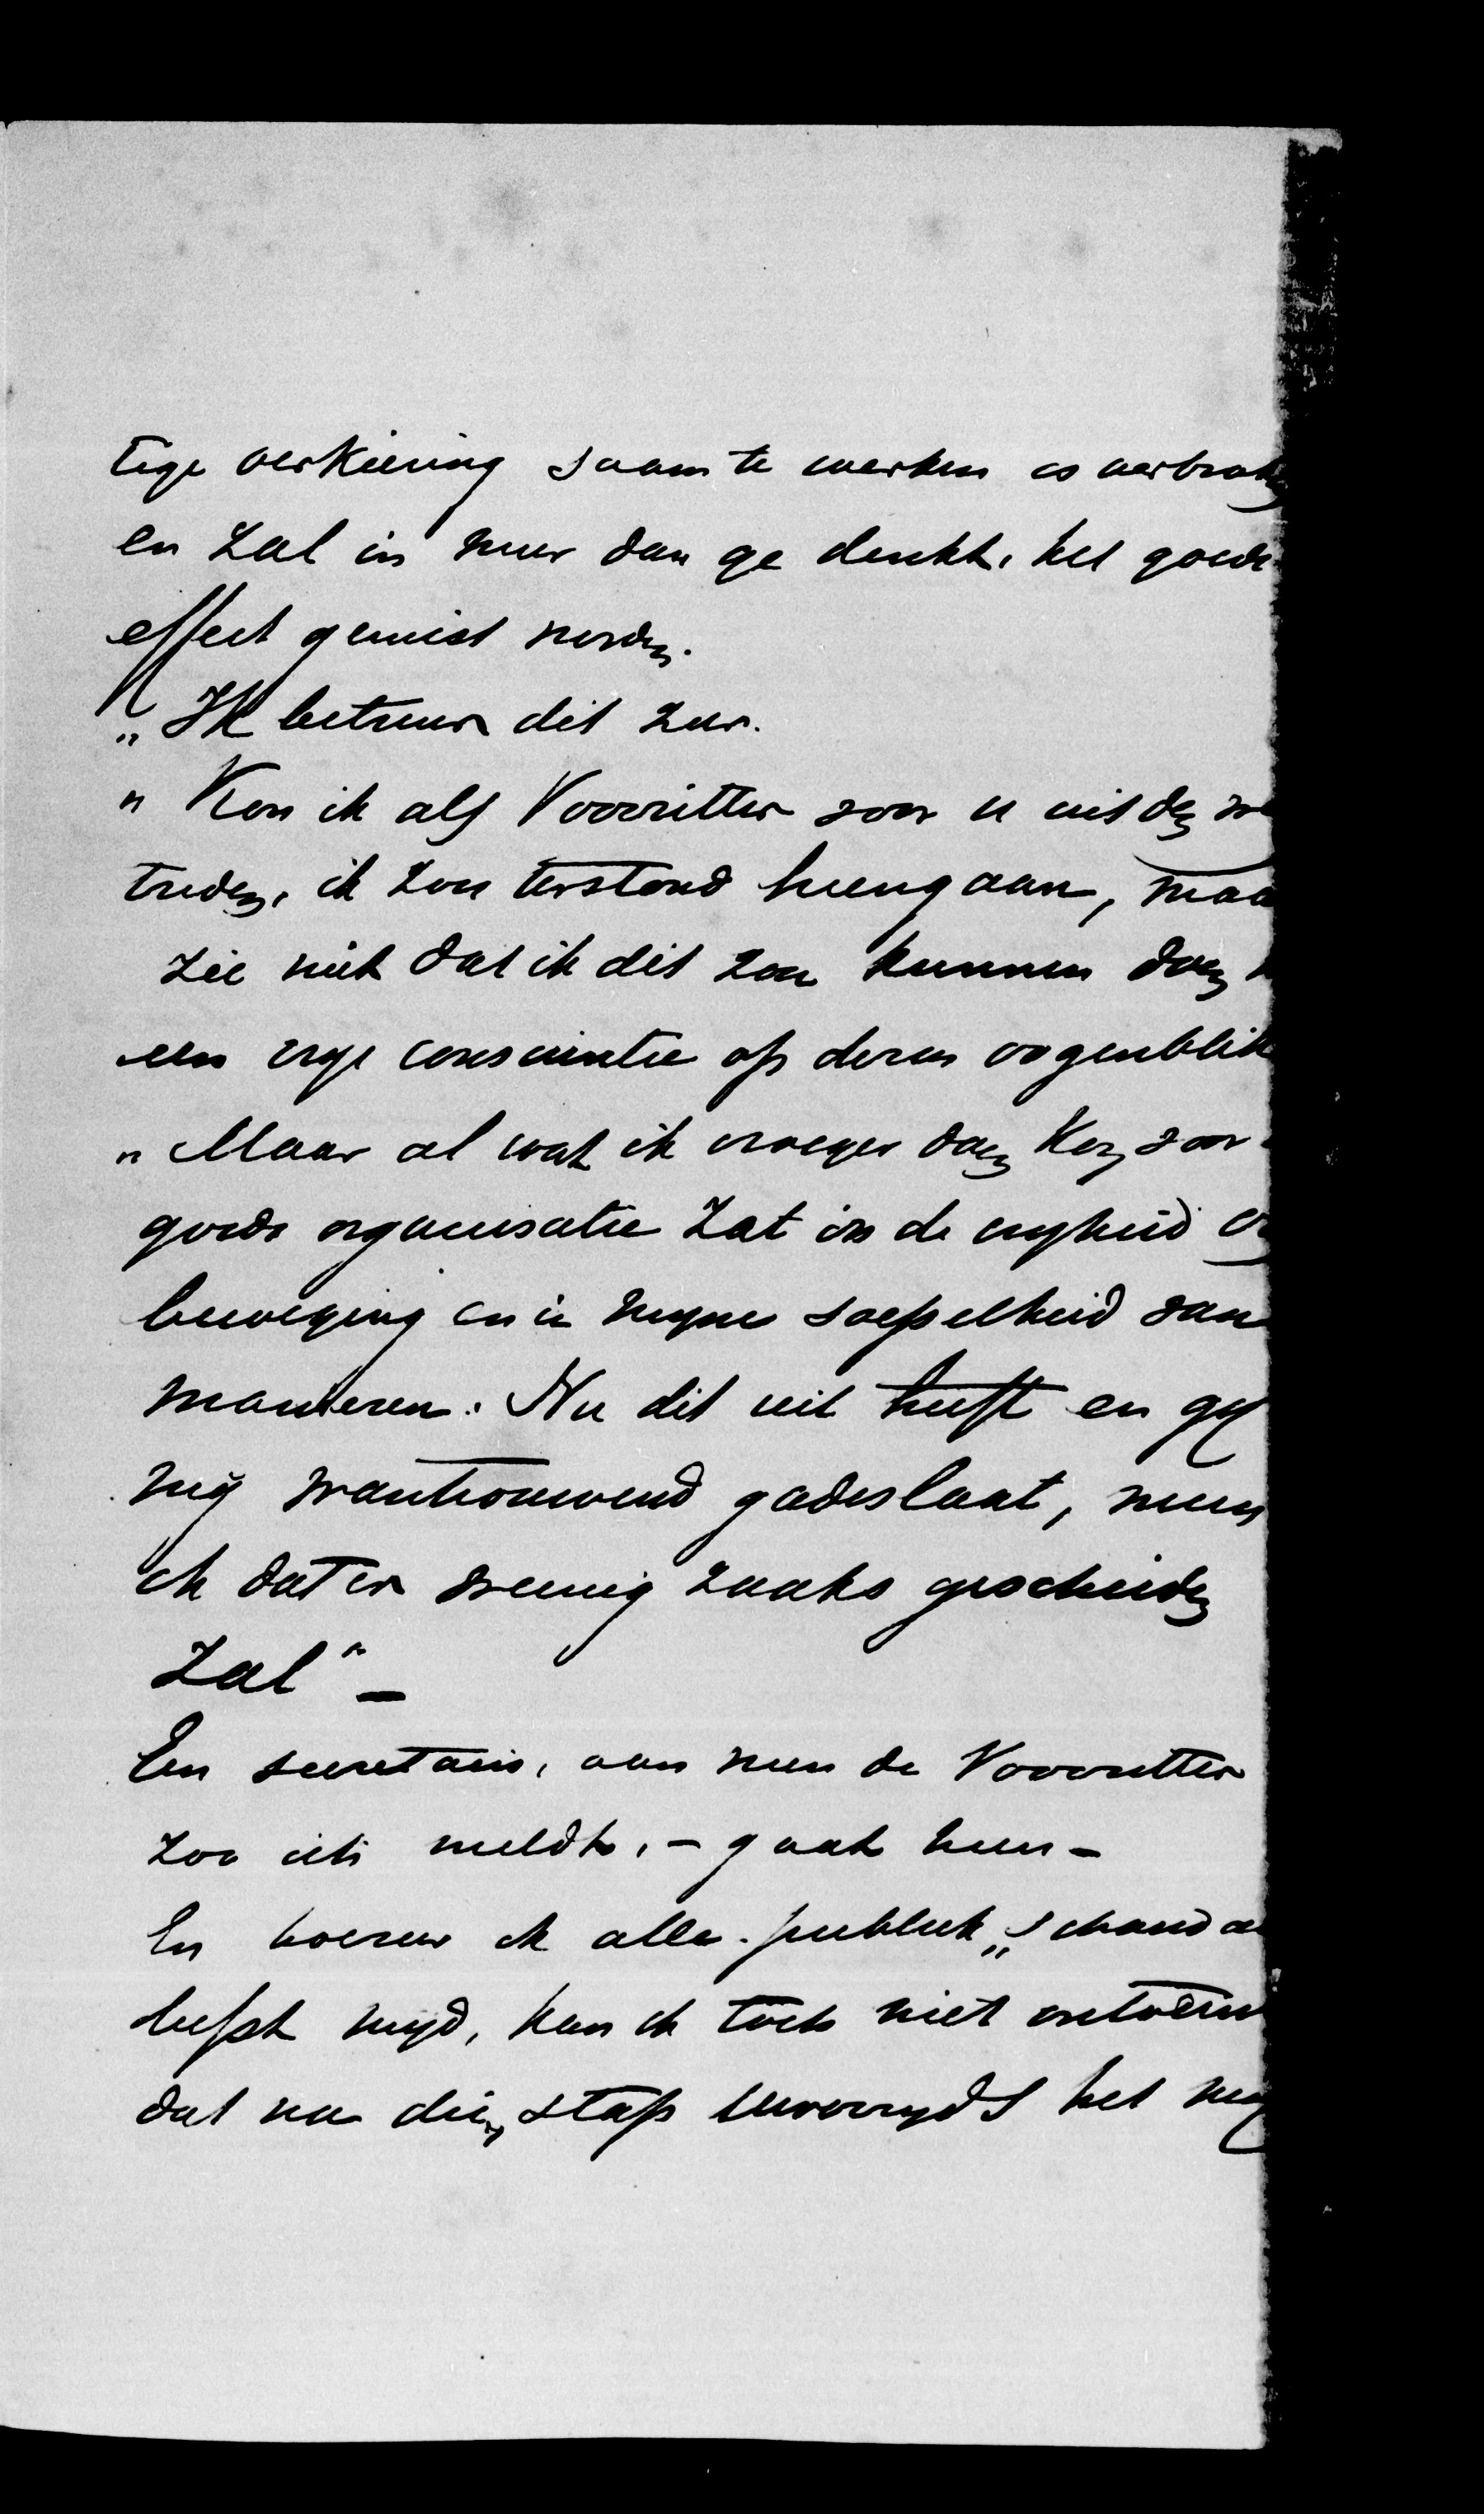 tige verkiezing saam te werken is verbrok
en zal in meer dan ge denkt, het goede
effect gemist worden.
„ Ik betreur dit zeer.
„ Kon ik als Voorzitter voor u uit den we
treden, ik zou terstond heengaan, maa
zie niet dat ik dit zou kunnen doen
een vrije conscientie op dezen oogenblik
„ Maar al wat ik vroeger doen kon, voor
goede organisatie zat in de vrijheid
beweging en in mijne soepelheid van
manieren. Nu dit uit heeft en gij
mij wantrouwend gadeslaat, meen
ik dat er weinig zaaks geschieden
zal" —
Een secretaris, aan wien de Voorzitter
zoo iets meldt, – gaat heen –
En hoezeer ik alle publiek „schanda
liefst mijd, kan ik toch niet ontveinz
dat na dien stap uwerzijds het mij